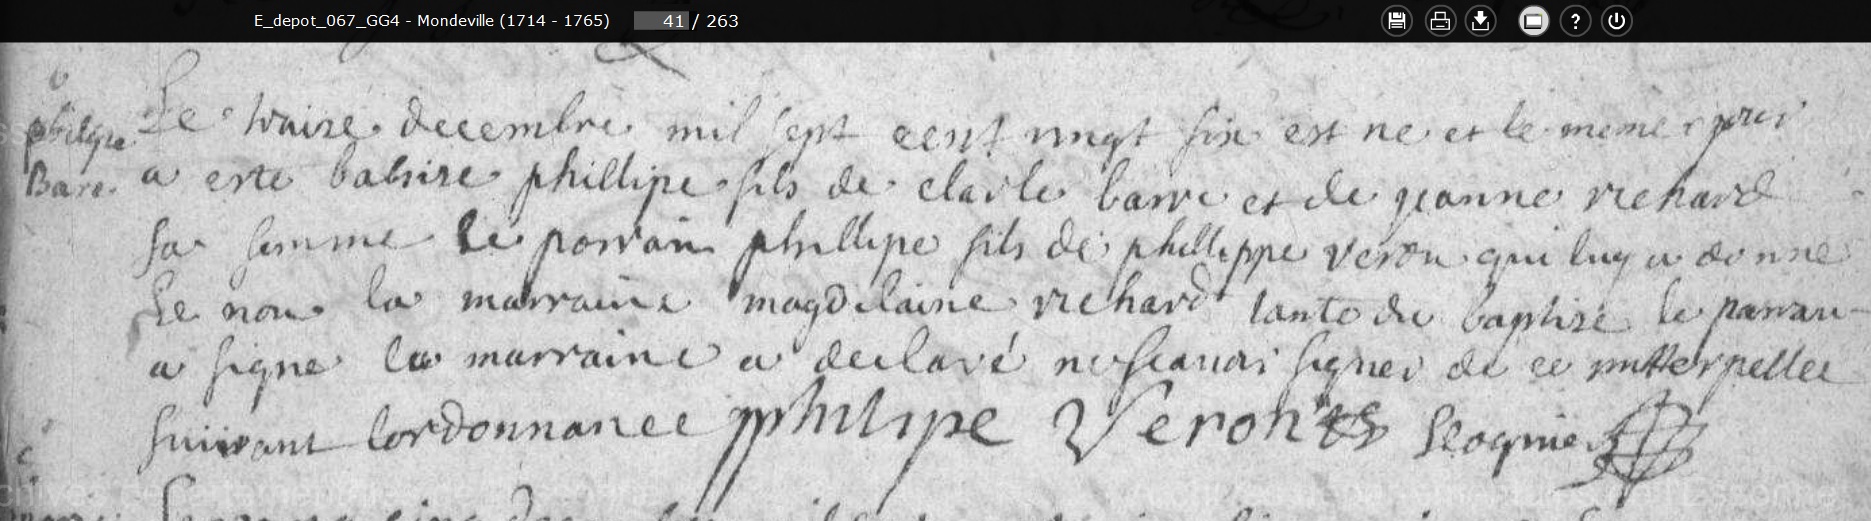 E_depot_067_GG4 - Mondeville (1714 - 1765) 41 / 263
philipe
Bare
Le traize decembre mil sept cent vingt six est ne et le meme jour
a este batsize phillipe fils de clarle barre et de jeanne richard
sa femme Le porrain phillipe fils de phillippe veron qui luy a donne
Le nom la marraine magdelaine richard tante du baptize le parrain
a signe la marraine a declaré ne scauoir signer de ce interpellee
suivant lordonnance philipe Veron